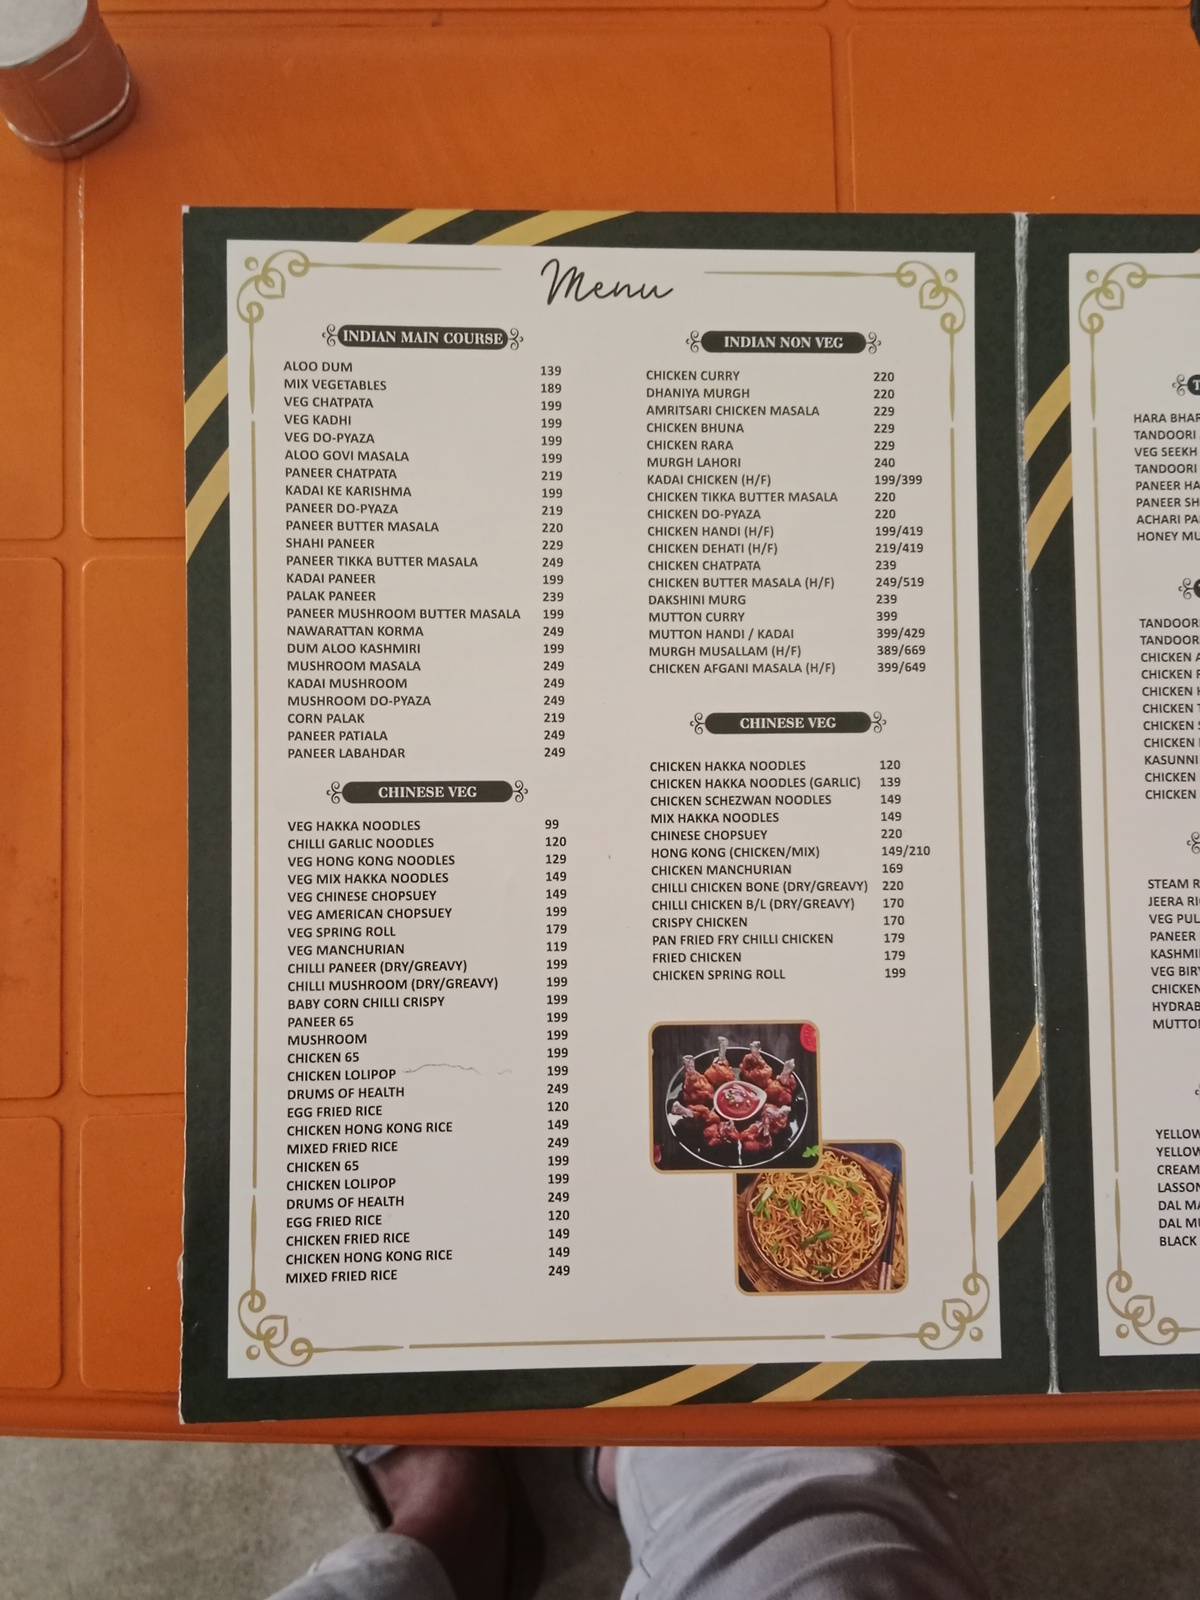 Menu
INDIAN MAIN COURSE
ALOO DUM 139
MIX VEGETABLES 189
VEG CHATPATA 199
VEG KADHI 199
VEG DO-PYAZA 199
ALOO GOVI MASALA 199
PANEER CHATPATA 219
KADAI KE KARISHMA 199
PANEER DO-PYAZA 219
PANEER BUTTER MASALA 220
SHAHI PANEER 229
PANEER TIKKA BUTTER MASALA 249
KADAI PANEER 199
PALAK PANEER 239
PANEER MUSHROOM BUTTER MASALA 199
NAWARATTAN KORMA 249
DUM ALOO KASHMIRI 199
MUSHROOM MASALA 249
KADAI MUSHROOM 249
MUSHROOM DO-PYAZA 249
CORN PALAK 219
PANEER PATIALA 249
PANEER LABAHDAR 249
CHINESE VEG
VEG HAKKA NOODLES 99
CHILLI GARLIC NOODLES 120
VEG HONG KONG NOODLES 129
VEG MIX HAKKA NOODLES 149
VEG CHINESE CHOPSUEY 149
VEG AMERICAN CHOPSUEY 199
VEG SPRING ROLL 179
VEG MANCHURIAN 119
CHILLI PANEER (DRY/GREAVY) 199
CHILLI MUSHROOM (DRY/GREAVY) 199
BABY CORN CHILLI CRISPY 199
PANEER 65 199
MUSHROOM 199
CHICKEN 65 199
CHICKEN LOLIPOP 199
DRUMS OF HEALTH 249
EGG FRIED RICE 120
CHICKEN HONG KONG RICE 149
MIXED FRIED RICE 249
CHICKEN 65 199
CHICKEN LOLIPOP 199
DRUMS OF HEALTH 249
EGG FRIED RICE 120
CHICKEN FRIED RICE 149
CHICKEN HONG KONG RICE 149
MIXED FRIED RICE 249
INDIAN NON VEG
CHICKEN CURRY 220
DHANIYA MURGH 220
AMRITSARI CHICKEN MASALA 229
CHICKEN BHUNA 229
CHICKEN RARA 229
MURGH LAHORI 240
KADAI CHICKEN (H/F) 199/399
CHICKEN TIKKA BUTTER MASALA 220
CHICKEN DO-PYAZA 220
CHICKEN HANDI (H/F) 199/419
CHICKEN DEHATI (H/F) 219/419
CHICKEN CHATPATA 239
CHICKEN BUTTER MASALA (H/F) 249/519
DAKSHINI MURG 239
MUTTON CURRY 399
MUTTON HANDI / KADAI 399/429
MURGH MUSALLAM (H/F) 389/669
CHICKEN AFGANI MASALA (H/F) 399/649
CHINESE VEG
CHICKEN HAKKA NOODLES 120
CHICKEN HAKKA NOODLES (GARLIC) 139
CHICKEN SCHEZWAN NOODLES 149
MIX HAKKA NOODLES 149
CHINESE CHOPSUEY 220
HONG KONG (CHICKEN/MIX) 149/210
CHICKEN MANCHURIAN 169
CHILLI CHICKEN BONE (DRY/GREAVY) 220
CHILLI CHICKEN B/L (DRY/GREAVY) 170
CRISPY CHICKEN 170
PAN FRIED FRY CHILLI CHICKEN 179
FRIED CHICKEN 179
CHICKEN SPRING ROLL 199
HARA
TANDOORI
VEG SEEKH
TANDOORI
PANEER
PANEER
ACHARI
HONEY
TANDOORI
CHICKEN
CHICKEN
CHICKEN
CHICKEN
CHICKEN
CHICKEN
CHICKEN
CHICKEN
STEAM
JEERA
VEG
PANEER
VEG
CHICKEN
YELLOW
YELLOW
CREAM
DAL
DAL
BLACK